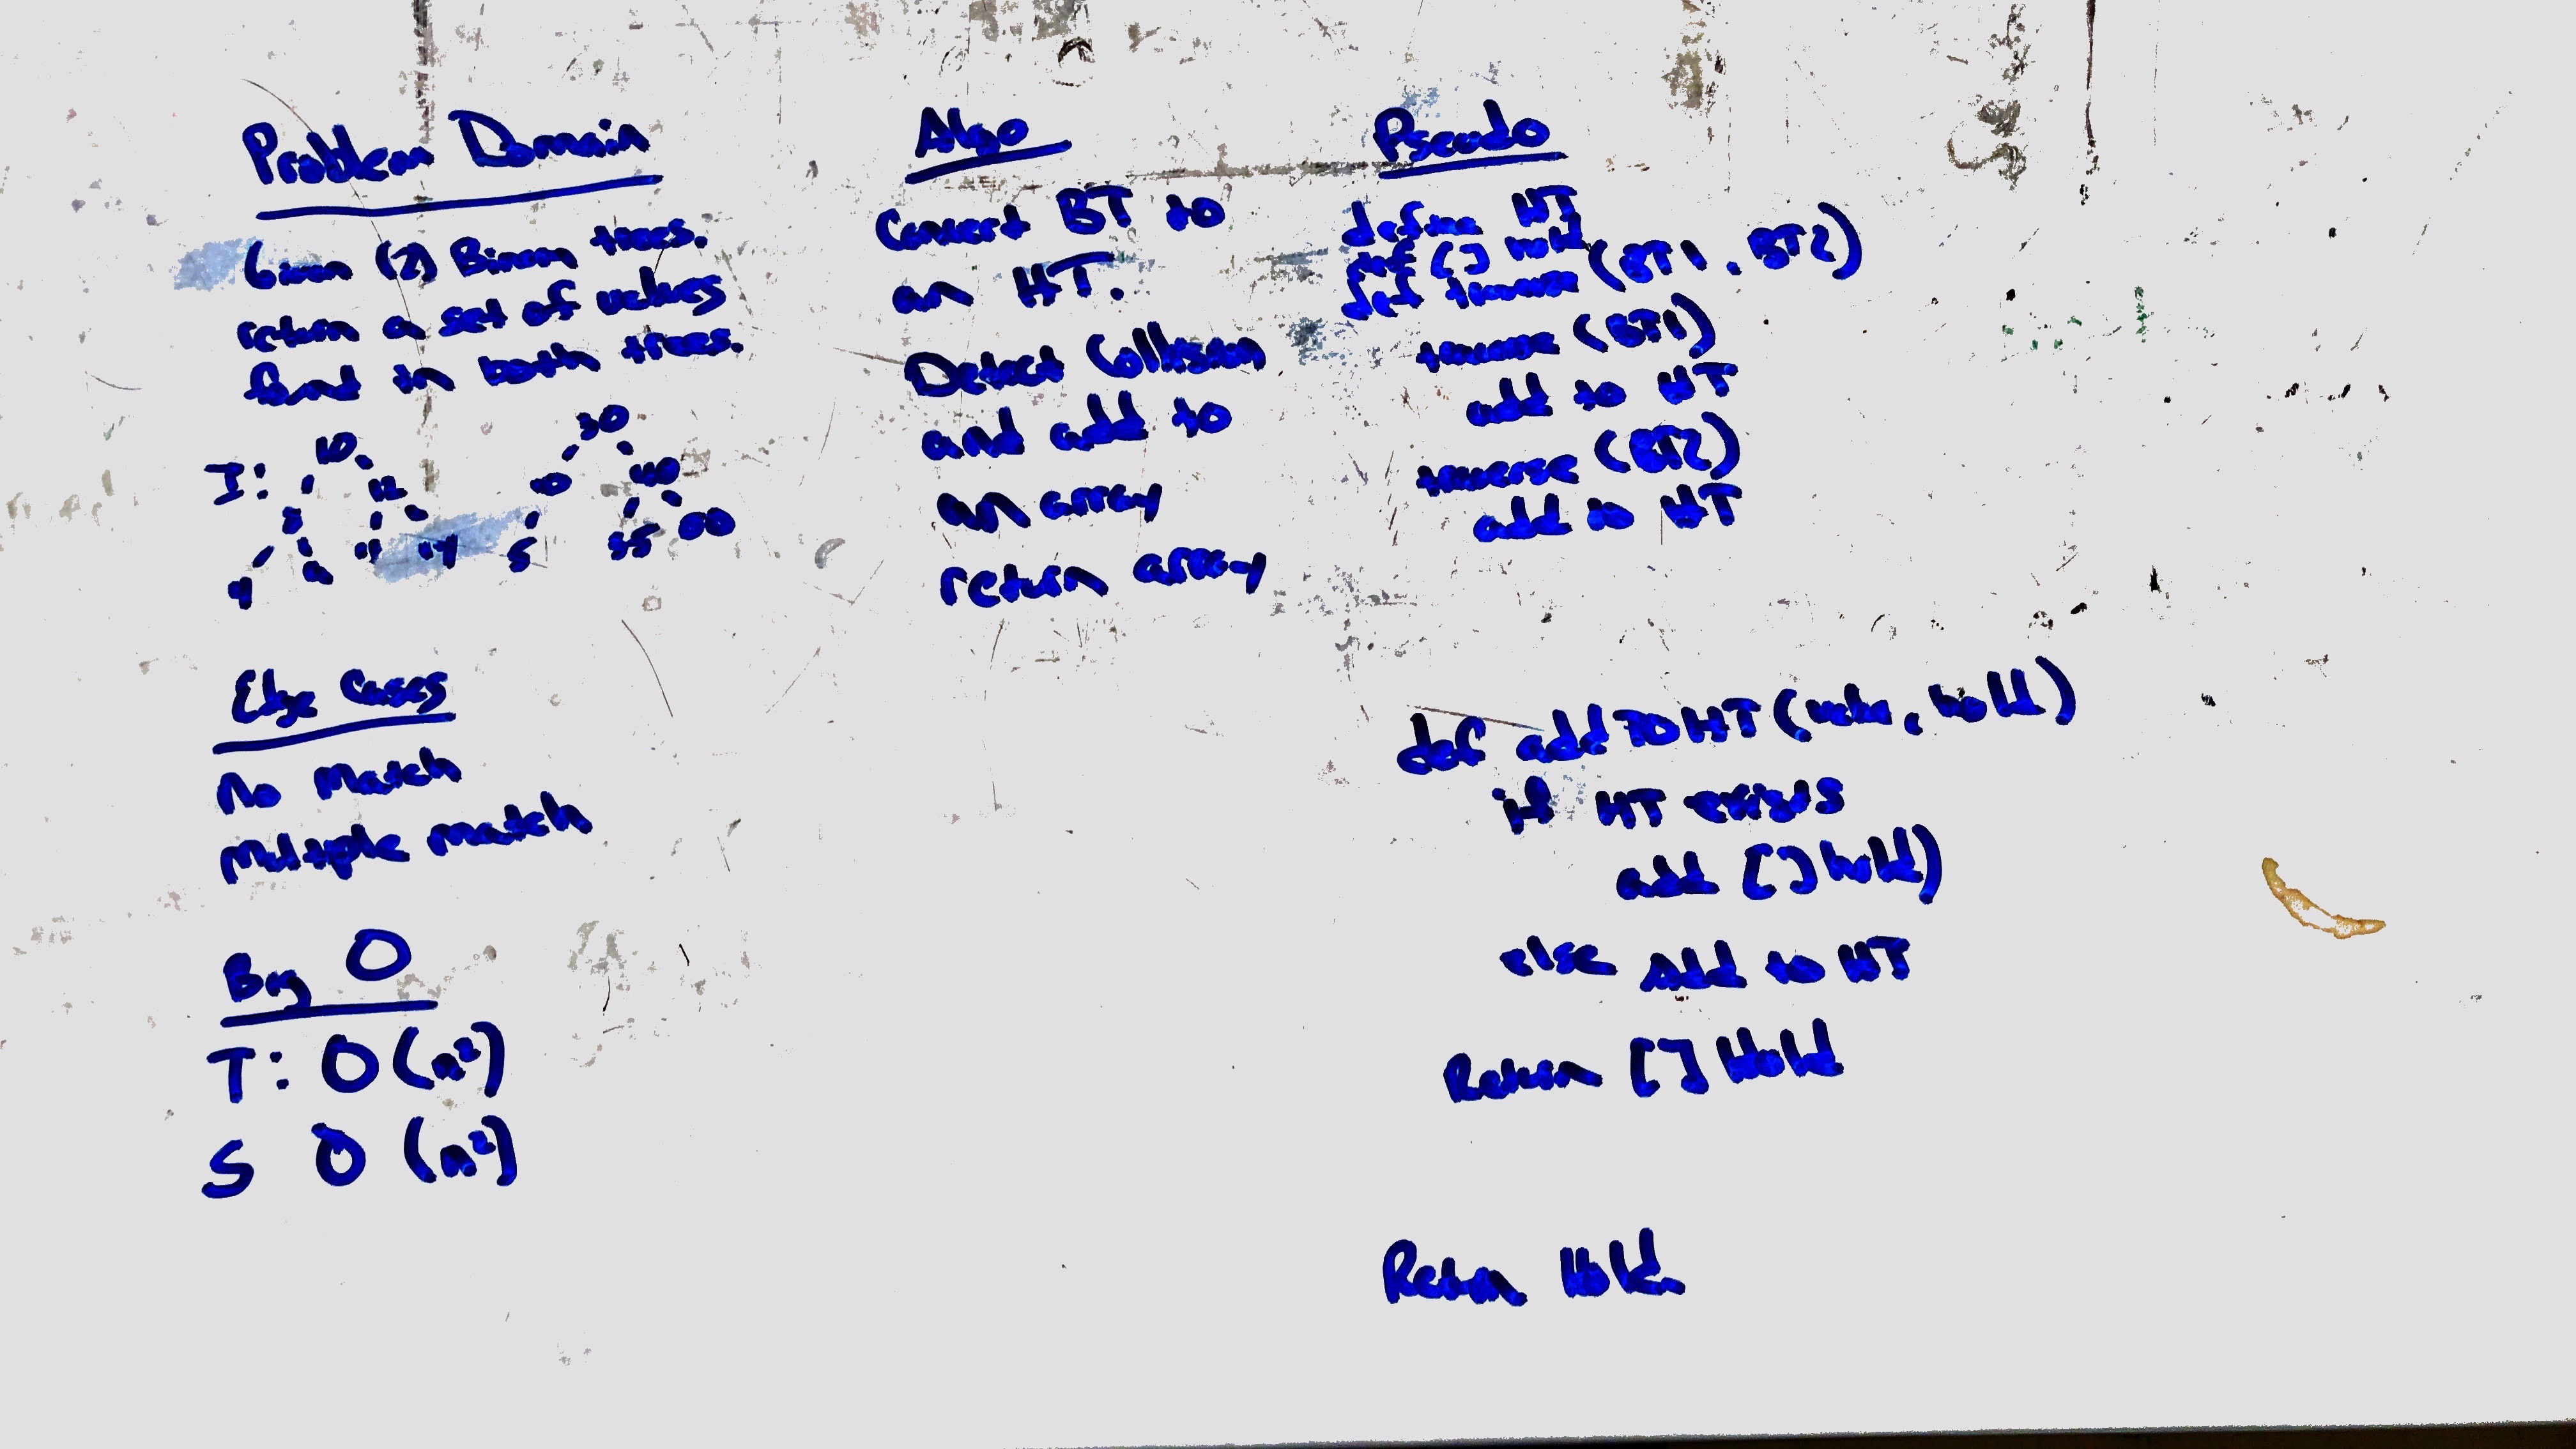 Problem Domain
Given (2) Binary trees.
return a set of values
found in both trees.
I:
10
12
11
4
30
10
40
5
35
Edge Cases
No Match
Multiple match
Big O
T: O(n²)
S O (n²)
Algo
Convert BT to
an HT.
Detect Collision
and add to
an array
return array
Pseudo
define HT
def [] hold
def traverse (BT1, BT2)
traverse (BT1)
add to HT
traverse (BT2)
add to HT
def addTOHT (value, hold)
if HT exists
add [] hold)
else Add to HT
Return [] Hold
Return Hold